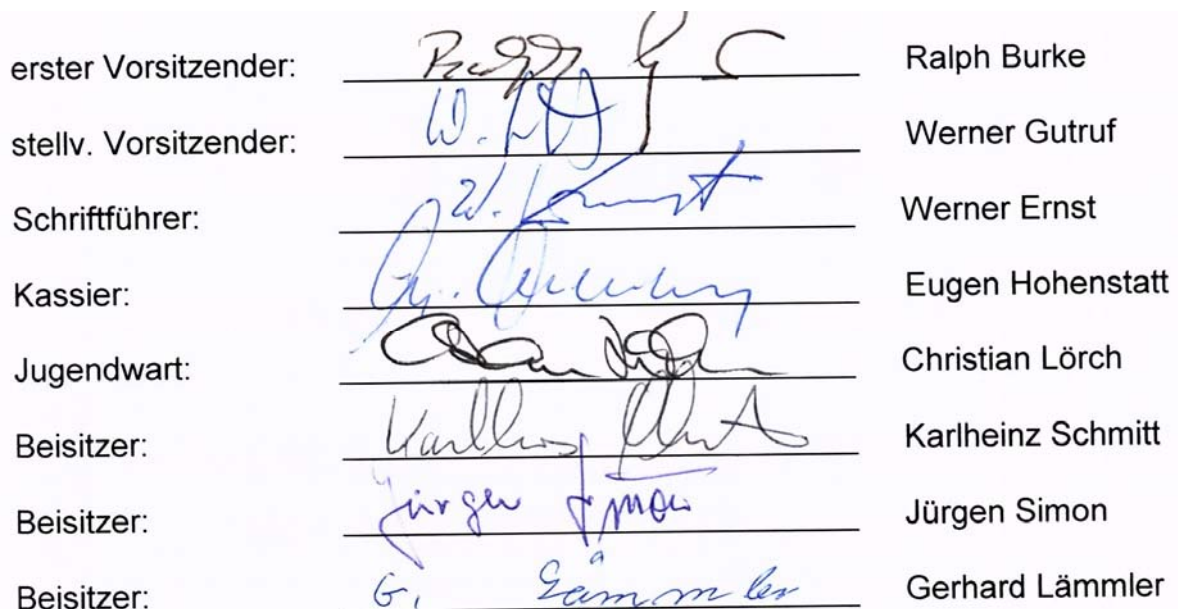 erster Vorsitzender: Ralph Burke
stellv. Vorsitzender: W. Werner Gutruf
Schriftführer: W. Ernst Werner Ernst
Kassier: Eugen Hohenstatt
Jugendwart: Christian Lörch
Beisitzer: Karlheinz Schmitt
Beisitzer: Jürgen Simon Jürgen Simon
Beisitzer: G. Lämmler Gerhard Lämmler